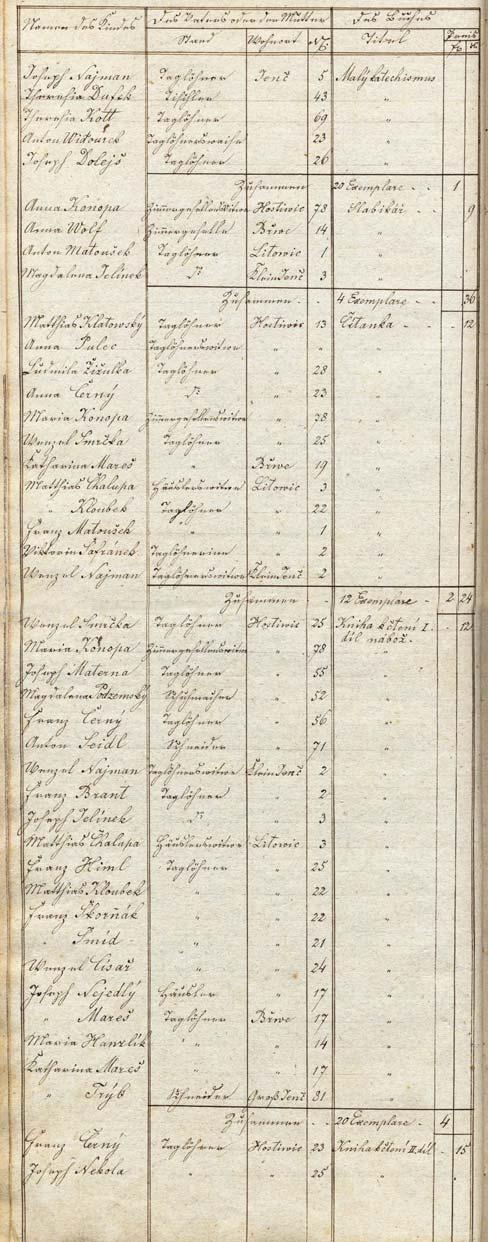 Namen des Kindes Des Vaters oder der Mutter Des Buches
Stand Wohnort № Titel Preis
fr x
Joseph Najman Taglöhner Jenč 5 Malý katechismus
Theresia Dufek Tischler " 43 "
Theresia Kott Taglöhner " 69 "
Anton Witourek Taglöhnerswaise " 23 "
Joseph Dolejš Taglöhner " 26 "
Zusammen 20 Exemplare - - 1
Anna Konopa Zimmergesellenswitwe Hostiwic 78 Slabikář - - 9
Anna Wolf Zimmergeselle Břwe 14 "
Anton Matoušek Taglöhner Litowic 1 "
Magdalena Jelínek Dto Klein Jenč 3 "
Zusammen - - 4 Exemplare - - 36
Matthias Klatowský Taglöhner Hostiwic 13 Čítanka - - - 12
Anna Pulec Taglöhnerswitwe " " "
Ludmila Žižulka Taglöhner " 28 "
Anna Černý Dto " 23 "
Maria Konopa Zimmergesellenswitwe " 78 "
Wenzel Smrčka Taglöhner " 25 "
Katharina Mareš " Břwe 19 "
Matthias Chalupa Häuslerswitwe Litowic 3 "
" Kloubek Taglöhner " 22 "
Franz Matoušek " " 1 "
Viktorin Šafránek Taglöhnerinn " 2 "
Wenzel Najman Taglöhnerswitwe Klein Jenč 2 "
Zusammen 12 Exemplare - 2 24
Wenzel Smrčka Taglöhner Hostiwic 25 Kniha k čtení I. - 12
díl nábož.
Maria Konopa Zimmergesellenswitwe " 78
Joseph Materna Taglöhner " 55 "
Magdalena Podzemský Schuhmacher " 52 "
Franz Černý Taglöhner " 56 "
Anton Seidl Schneider " 71 "
Wenzel Najman Taglöhnerswitwe Klein Jenč 2 "
Franz Brant Taglöhner " 2 "
Joseph Jelínek Dto " 3 "
Matthias Chalupa Häuslerswitwe Litowic 3 "
Franz Himl Taglöhner " 25 "
Matthias Kloubek " " 22 "
Franz Skorňák " " 22 "
" Šmíd " " 21 "
Wenzel Císař " " 24 "
Joseph Nejedlý Häusler " 17 "
" Mareš Taglöhner Břwe 17 "
Maria Hanzlík " " 14 "
Katharina Mareš " " 17 "
" Trýb Schneider Groß Jenč 31 "
Zusammen - - 20 Exemplare - 4
Franz Černý Taglöhner Hostiwic 23 Kniha k čtení II. díl - 15
Joseph Nekola " " 25 "